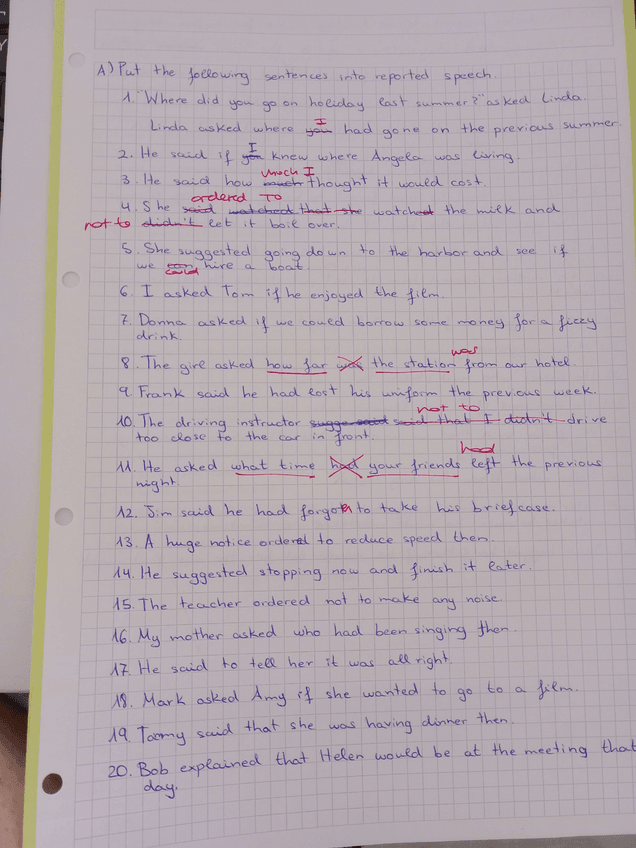 A) Put the following sentences into reported speech.
1. "Where did you go on holiday last summer?" asked Linda.
I
Linda asked where you had gone on the previous summer.
I
2. He said if you knew where Angela was living.
much I
3. He said how much thought it would cost.
ordered to
4. She said watched that she watched the milk and
not to didn't let it boil over.
5. She suggested going down to the harbor and see if
we can hire a boat.
could
6. I asked Tom if he enjoyed the film.
7. Donna asked if we could borrow some money for a fizzy
drink.
was
8. The girl asked how far was the station from our hotel.
9. Frank said he had lost his uniform the previous week.
not to
10. The driving instructor said that I didn't drive
too close to the car in front.
had
11. He asked what time had your friends left the previous
night.
12. Jim said he had forgotn to take his briefcase.
13. A huge notice ordered to reduce speed then.
14. He suggested stopping now and finish it later.
15. The teacher ordered not to make any noise
16. My mother asked who had been singing then.
17. He said to tell her it was all right.
18. Mark asked Amy if she wanted to go to a film.
19. Toomy said that she was having dinner then.
20. Bob explained that Helen would be at the meeting that
day.